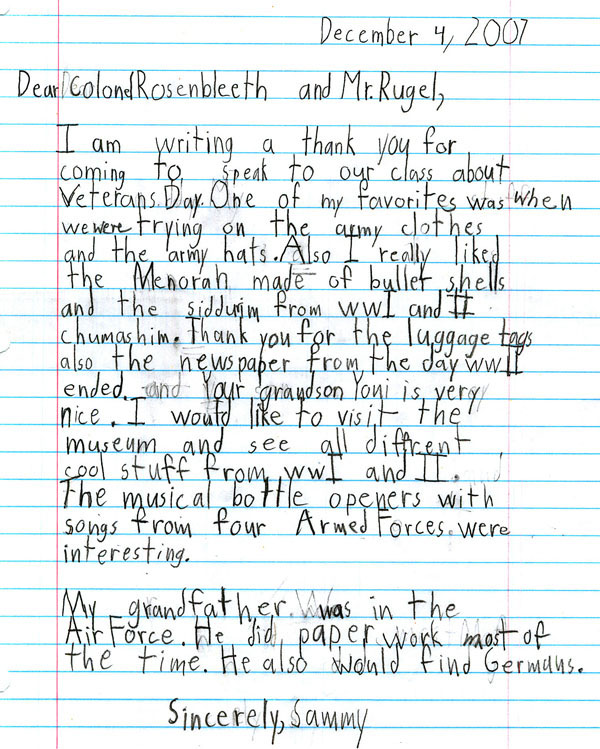 December 4, 2007
Dear Colonel Rosenbleeth and Mr. Rugel,
I am writing a thank you for
coming to speak to our class about
Veterans Day. One of my favorites was when
we were trying on the army clothes
and the army hats. Also I really liked
the Menorah made of bullet shells
and the siddurim from WWI and II
chumashim. Thank you for the luggage tags
also the newspaper from the day WWII
ended. and Your grandson Yoni is very
nice. I would like to visit the
museum and see all diffrent
cool stuff from WWI and II.
The musical bottle openers with
songs from four Armed Forces were
interesting.
My grandfather was in the
Air Force. He did paper work most of
the time. He also would find Germans.
Sincerely, Sammy